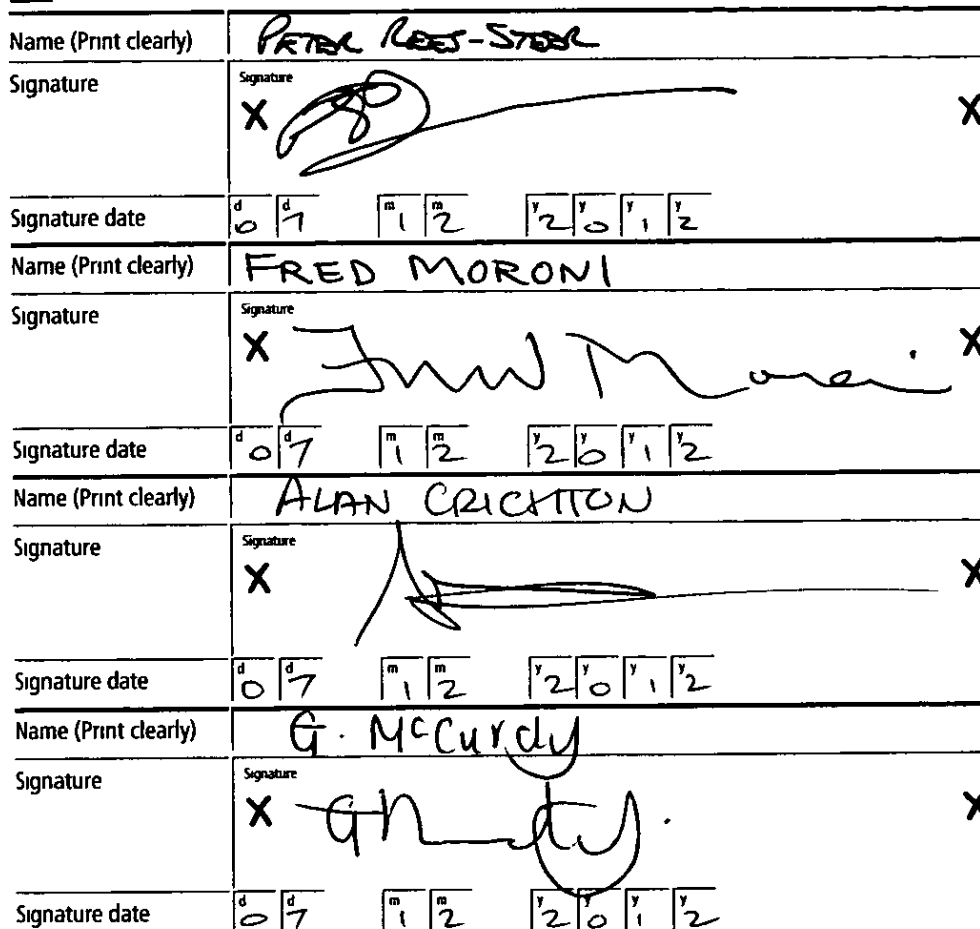 Name (Print clearly) PETER REES-STEER
Signature Signature
X X
Signature date d 0 d 7 m 1 m 2 y 2 y 0 y 1 y 2
Name (Print clearly) FRED MORONI
Signature Signature
X Fred Moroni X
Signature date d 0 d 7 m 1 m 2 y 2 y 0 y 1 y 2
Name (Print clearly) ALAN CRICHTON
Signature Signature
X X
Signature date d 0 d 7 m 1 m 2 y 2 y 0 y 1 y 2
Name (Print clearly) G. McCurdy
Signature Signature
X X
Signature date d 0 d 7 m 1 m 2 y 2 y 0 y 1 y 2